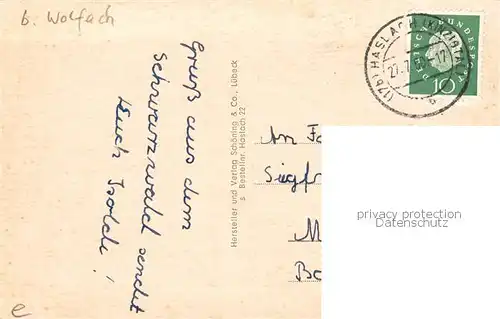 b. Wolfach
Gruß aus dem
Schwarzwald sendet
Euch Isolde!
Hersteller und Verlag Schöning & Co., Lübeck
s Bestellnr. Haslach 22
(17b) HASLACH (KINZIGTAL)
BUNDESPOST
10
An
Siegfr
M
privacy protection
Datenschutz
e